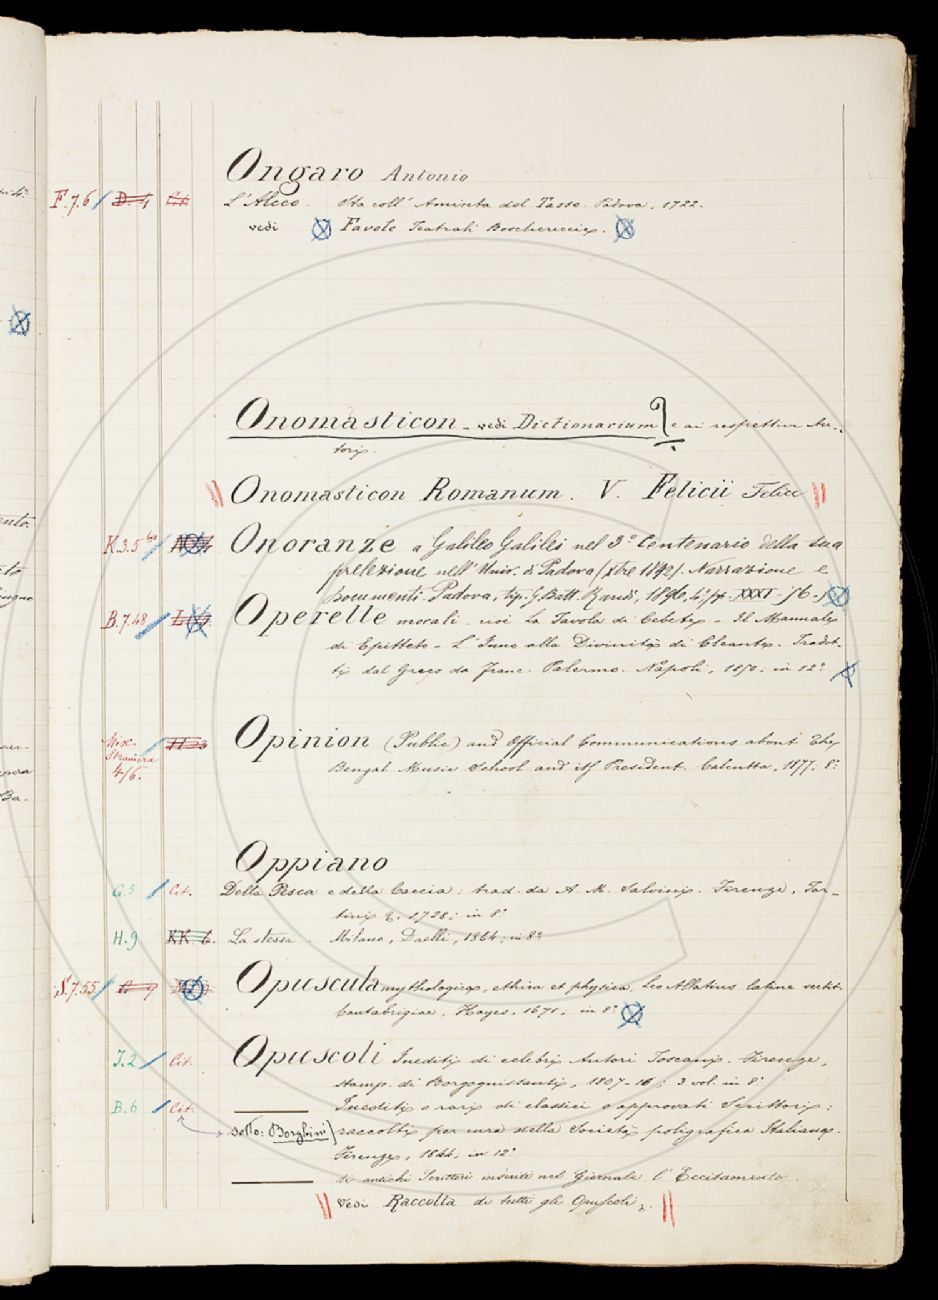 Ongaro Antonio
F.7.6 L'Alceo. Sta coll' Aminta del Tasso. Padova, 1722.
vedi Favole Teatrali Boschereccie.
Onomasticon - vedi Dictionarium e ai respettivi Au-
tori.
Onomasticon Romanum. V. Felicii Felice
K.3.5 Onoranze a Galileo Galilei nel 3° Centenario della sua
prelezione nell' Univ. di Padova (Xbre 1892). Narrazione e
Documenti. Padova, tip. G. Batt. Randi, 1896, 4°, pp. XXXI-76.
B.7.48 Operette morali. cioè La Tavola di Cebete - Il Manuale
di Epitteto - L'Inno alla Divinità di Cleante. Tradot-
ti dal Greco da Franc. Palermo. Napoli, 1850; in 12°
Misc.
Straniera
4/6.
Opinion (Public) and Official Communications about The
Bengal Music School and its President. Calcutta, 1877. 8°
Oppiano
G.5 Cit. Della Pesca e della Caccia: trad. da A. M. Salvini. Firenze, Tar-
tini 1728; in 8°
H.9 KK.6. La stessa. Milano, Daelli, 1864; in 8°
S.7.55 Opuscula mythologica, ethica et physica, Leo Allatius latine vertit.
Cantabrigiae, Hayes, 1671; in 8°
I.2 Cit. Opuscoli Inediti di celebri Autori Toscani. Firenze,
Stamp. di Borgognissanti, 1807-16; 3 vol. in 8°
B.6 Cit. Inediti o rari di classici o approvati Scrittori;
sotto: Borghini) raccolti per cura della Società poligrafica Italiana.
Firenze, 1844, in 12°
di antichi Scrittori inseriti nel Giornale l'Eccitamento.
Vedi Raccolta di tutti gli Opuscoli